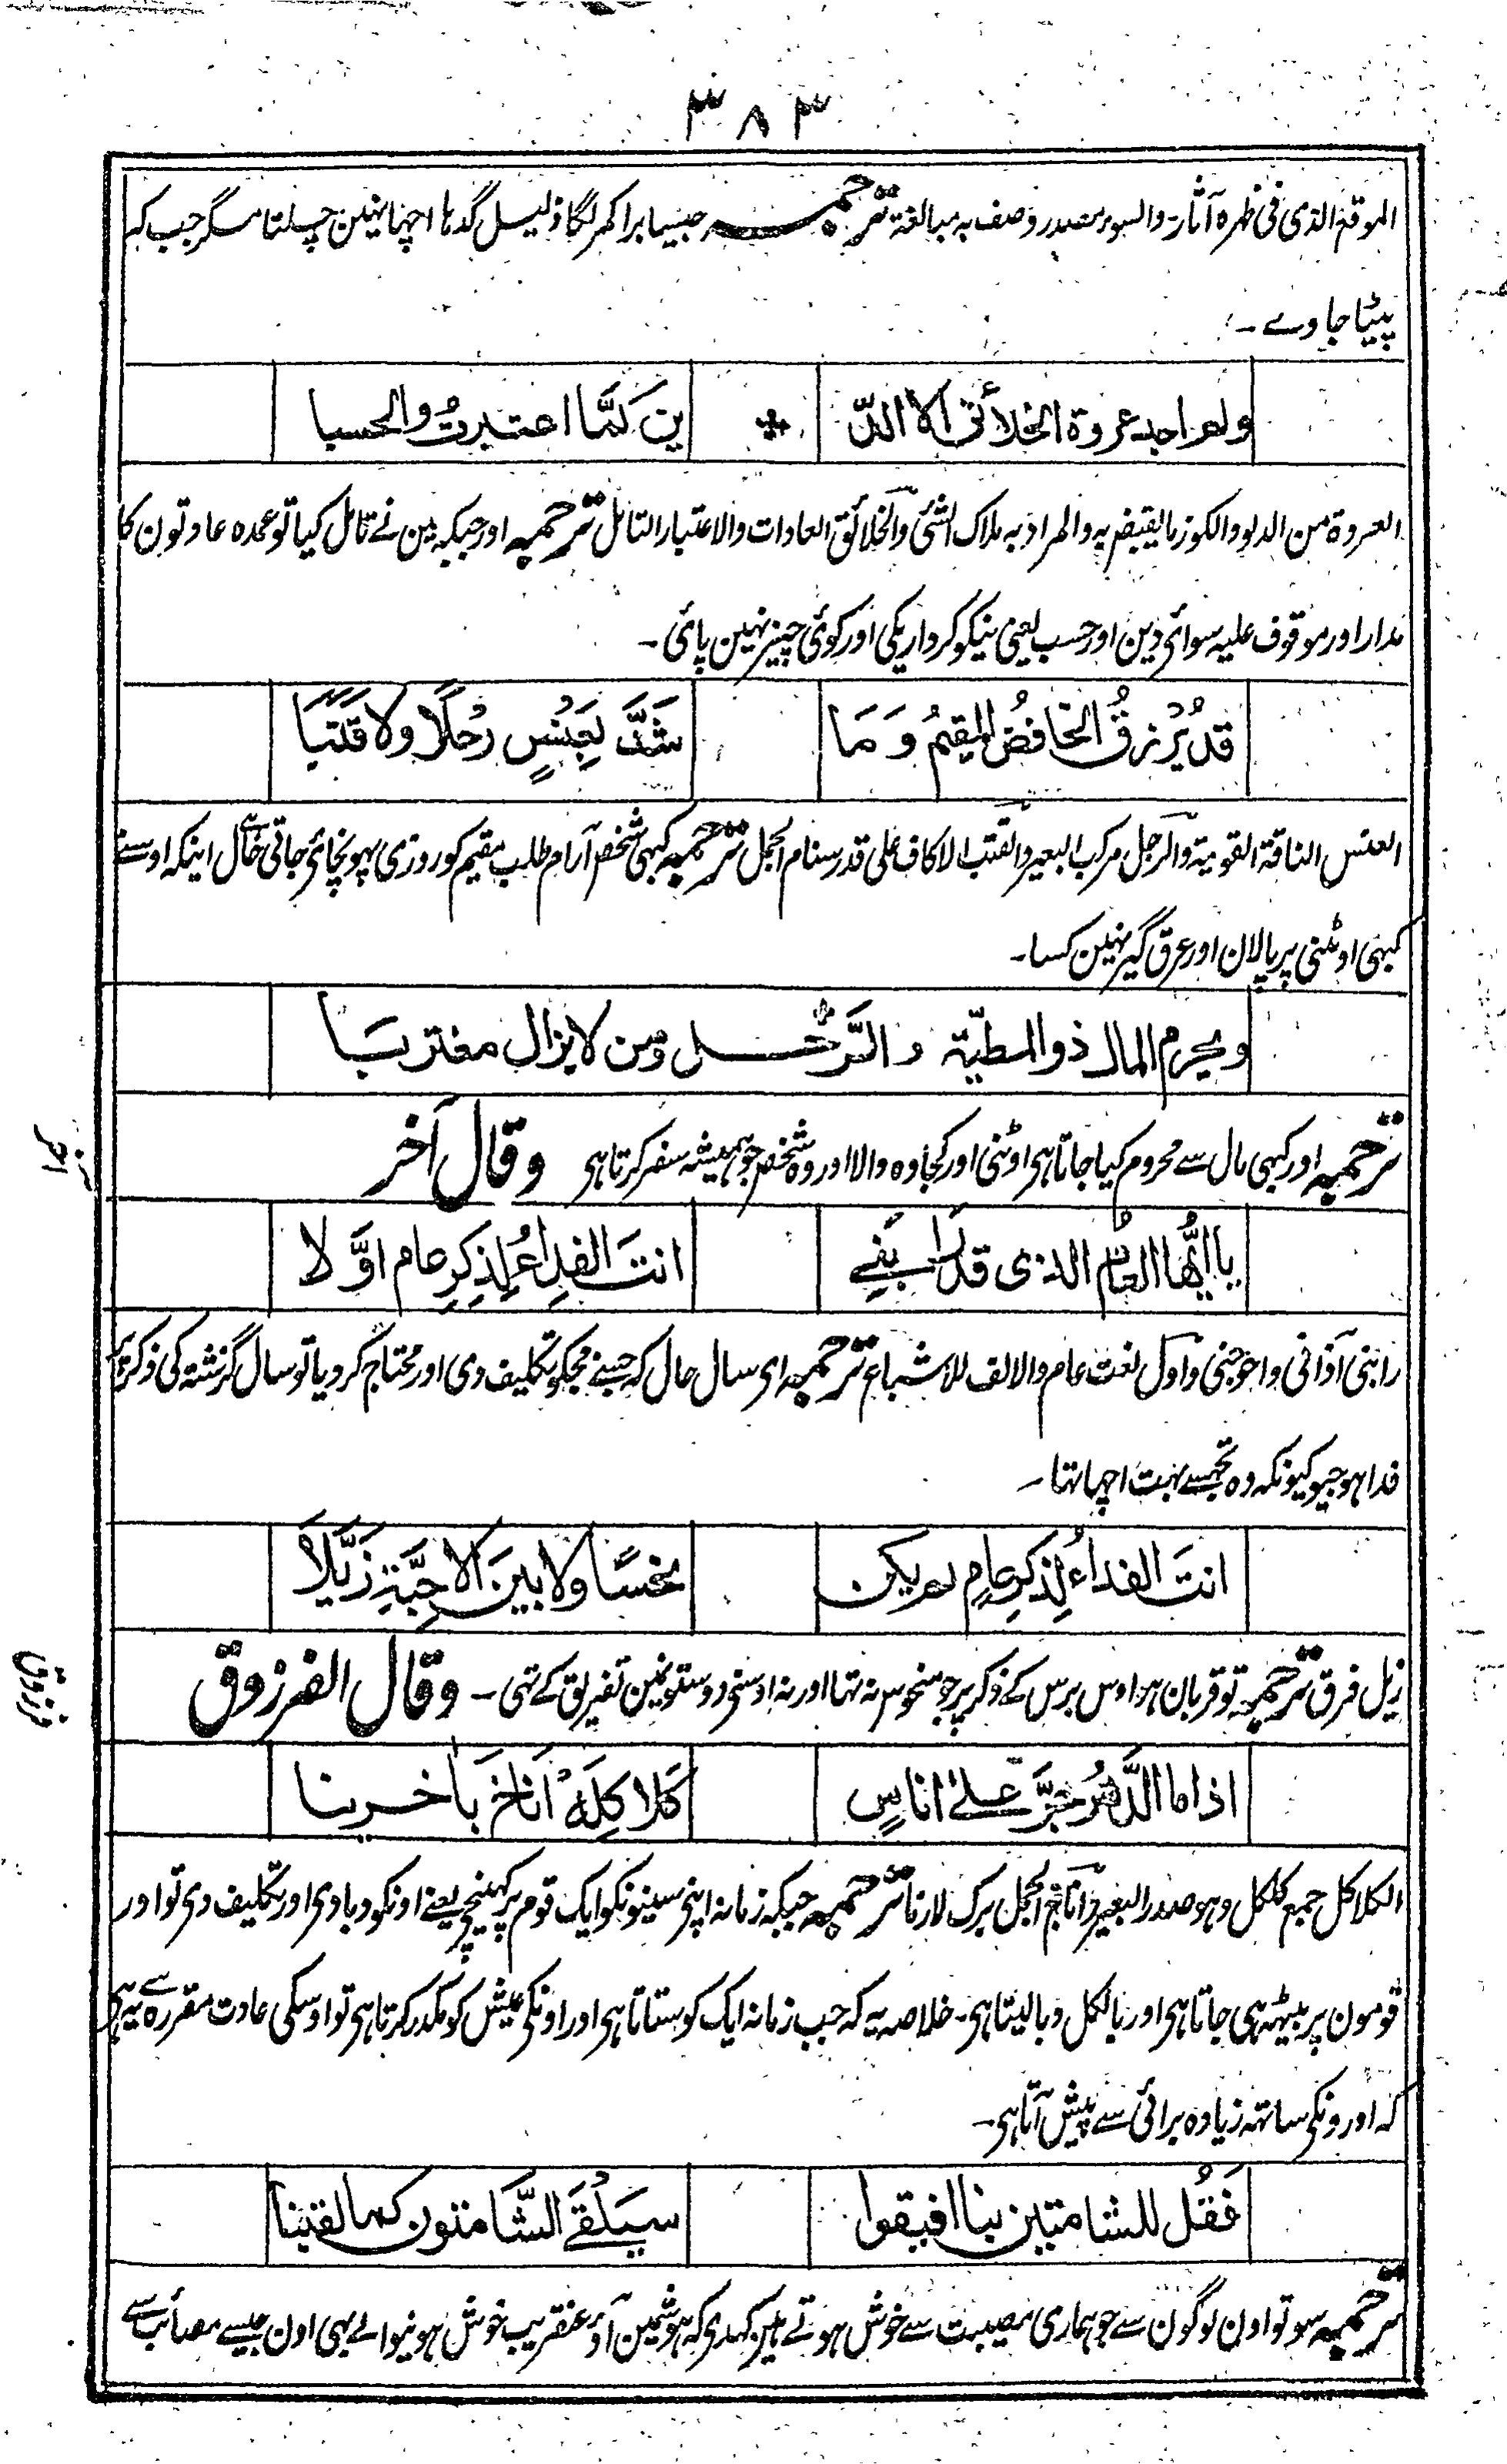 ۳۸۳
الموقع الذی فی ظهره آثار والسوء مصدر وصف به مبالغة ترجمہ جیسا برا کمر لگا ذلیل گدہا اچہا نہین چلتا مگر جب کہ
پیٹا جاوے ۔
ولم اجد عروة الخلائق الا الدّ * ين لمّا اعتبرتُ والحسبا
العروة من الدلو والکوز ما یقبض به والمراد به ملاک الشئ والخلائق العادات والاعتبار التامل ترجمہ اور جبکہ مین نے تامل کیا تو عمدہ عادتون کا
مدار اور موقوف علیہ سوائ دین اور حسب یعنی نیکو کرداریکی اور کوئ چیز نہین پائ ۔
قد يُرْزقُ الخافضُ المقيمُ وَمَا شَدَّ بِعَنْسٍ رَحْلًا ولا قَتَبَا
العنس الناقة القویة والرحل مرکب البعیر والقتب الاکاف علی قدر سنام الجمل ترجمہ کبہی شخص آرام طلب مقیم کو روزی پہونچائ جاتی حال اینکہ اوسنے
کبہی اوٹنی پر پالان اور عرق گیر نہین کسا ۔
ويحرم المال ذو المطيّة والرَّحل ومن لا يزال مغتربَا
ترجمہ اور کبہی مال سے محروم کیا جاتا ہی اوٹنی اور کجاوہ والا اور وہ شخص جو ہمیشہ سفر کرتا ہی وقال آخر
آخر
يا ايُّها العامُ الذی قد رَابَنِے انتَ الفداءُ لِذِكرِ عام اوَّلا
رابنی آذانی واحوجنی واول نعت عام والالف للاشباع ترجمہ ای سال حال کہ جسنے مجکو تکلیف دی اور محتاج کردیا تو سال گزشتہ کی ذکر پر
فدا ہو جیو کیونکہ وہ تجہسے بہت اچہا تہا ۔
انتَ الفداءُ لِذكرِ عامٍ لم يكن نحسًا ولا بينَ الاحِبَّةِ زَيَّلَا
زیل فرق ترجمہ تو قربان ہو اوس برس کے ذکر پر جو منحوس نہ تہا اور نہ اوسنی دوستونمین تفریق کے تہی ۔ وقال الفرزوق
فرزوق
اذا ما الدَّهرُ جَرَّ علےٰ اناسٍ كَلا كِلَهٗ اَناخَ بآخرينا
الکلاکل جمع کلکل وہو صدر البعیر واناخ الجمل برک لازما ترجمہ جبکہ زمانہ اپنی سینونکو ایک قوم پر کہینچی یعنے اونکو دبا دی اور تکلیف دی تو اور
قومون پر بیٹہہ ہی جاتا ہی اور بالکل دبا لیتا ہی ۔ خلاصہ یہ کہ جب زمانہ ایک کو ستاتا ہی اور اونکی عیش کو مکدر کرتا ہی تو اوسکی عادت مقررہ سے یہ ہی
کہ اورونکی ساتہہ زیادہ برائی سے پیش آتا ہی ۔
فَقُل للشامتين بنا افيقوا سيلقَے الشَّامتون كما لقينا
ترجمہ سو تو اون لوگون سے جو ہماری مصیبت سے خوش ہوتے ہین کہدی کہ ہوشمین آؤ عنقریب خوش ہونیوالے بہی اون جیسے مصائب سے